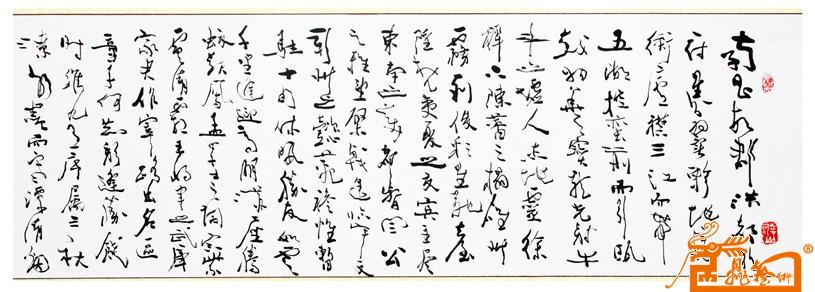 南昌故郡洪都新
府星分翼軫地接
衡廬襟三江而帶
五湖控蠻荊而引甌
越物華天寶龍光射牛
斗之墟人傑地靈徐
孺下陳蕃之榻雄州
霧列俊彩星馳臺
隍枕夷夏之交賓主盡
東南之美都督閻公
之雅望棨戟遙臨宇文
新州之懿範襜帷暫
駐十旬休暇勝友如雲
千里逢迎高朋滿座騰
蛟起鳳孟學士之詞宗紫
電清霜王將軍之武庫
家君作宰路出名區
童子何知躬逢勝餞
時維九月序屬三秋
潦水盡而寒潭清煙